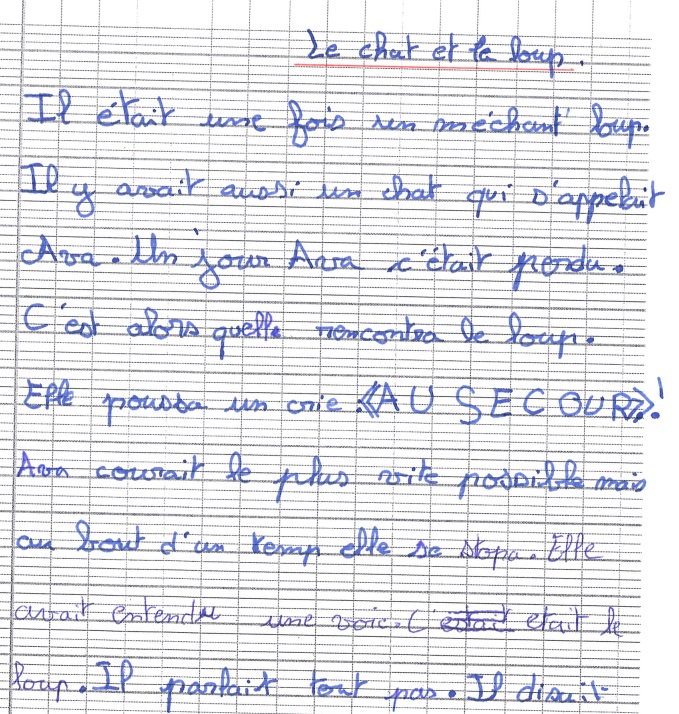 Le chat et le loup.
Il était une fois un méchant loup.
Il y avait aussi un chat qui s'appelait
Ava. Un jour Ava c'était perdu.
C'est alors quelle rencontra le loup.
Elle poussa un crie :«AU SECOUR»!
Ava courait le plus vite possible mais
au bout d'un temp elle se stopa. Elle
avait entendu une voie. C'etait le
loup. Il parlait tout pas. Il disait